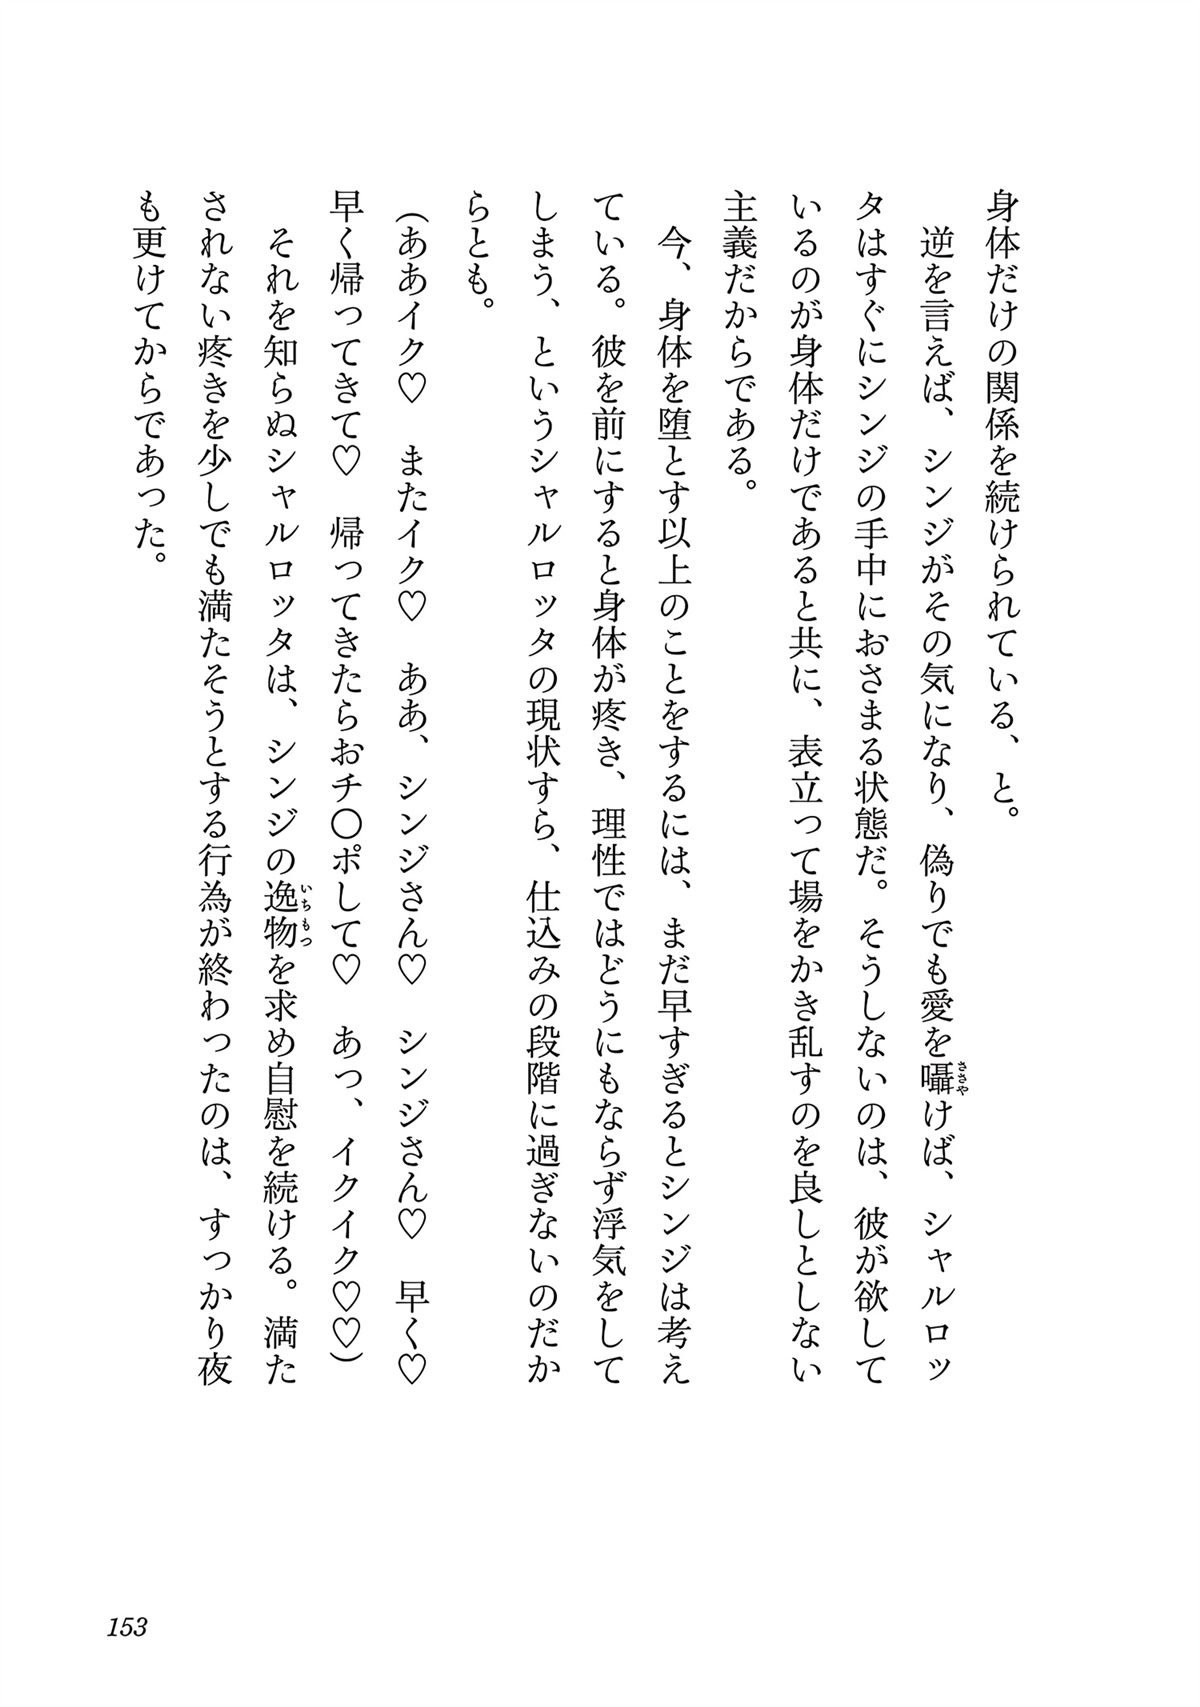 身体だけの関係を続けられている、と。
　逆を言えば、シンジがその気になり、偽りでも愛を囁けば、シャルロッ
ささや
タはすぐにシンジの手中におさまる状態だ。そうしないのは、彼が欲して
いるのが身体だけであると共に、表立って場をかき乱すのを良しとしない
主義だからである。
　今、身体を堕とす以上のことをするには、まだ早すぎるとシンジは考え
ている。彼を前にすると身体が疼き、理性ではどうにもならず浮気をして
しまう、というシャルロッタの現状すら、仕込みの段階に過ぎないのだか
らとも。
（ああイク♡　またイク♡　ああ、シンジさん♡　シンジさん♡　早く♡
早く帰ってきて♡　帰ってきたらおチ〇ポして♡　あっ、イクイク♡♡）
　それを知らぬシャルロッタは、シンジの逸物を求め自慰を続ける。満た
いちもつ
されない疼きを少しでも満たそうとする行為が終わったのは、すっかり夜
も更けてからであった。
153